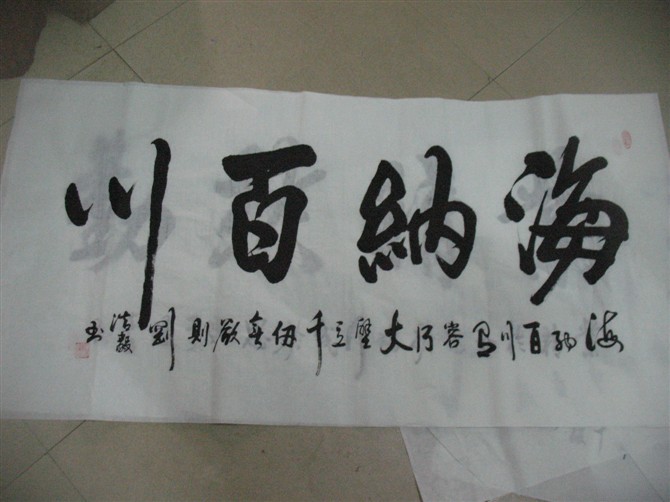 海納百川
海納百川有容乃大壁立千仞無欲則剛
浩毅书